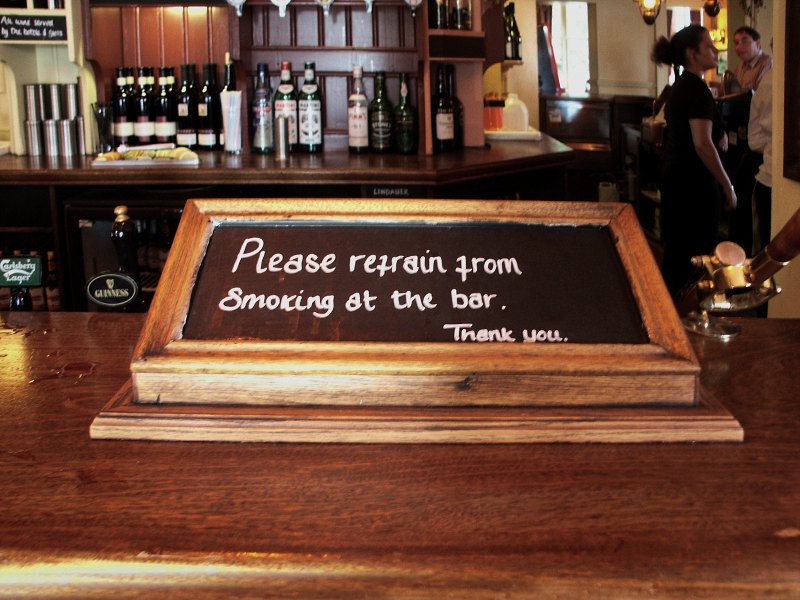 All wine served
by the bottle & glass
LINDAUER
Carlsberg
Lager
GUINNESS
Please refrain from
Smoking at the bar.
Thank you.